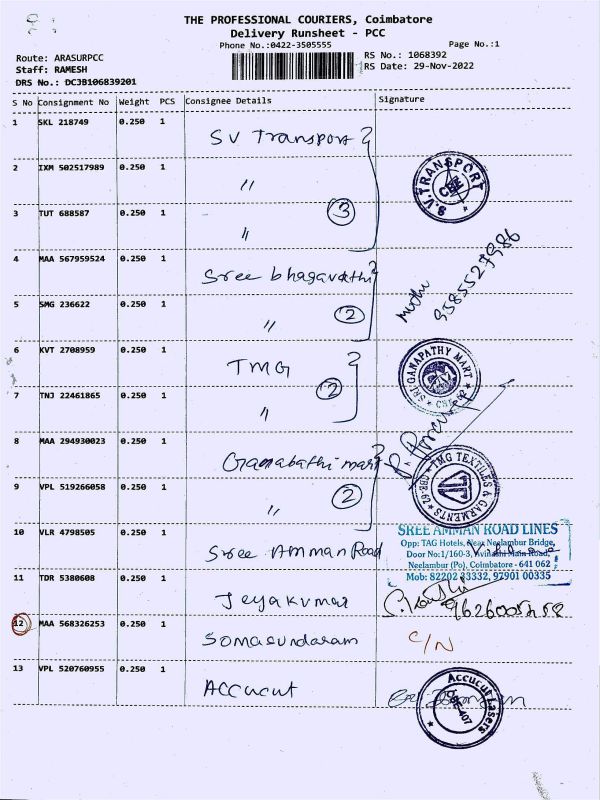 THE PROFESSIONAL COURIERS, Coimbatore
Delivery Runsheet - PCC
Phone No.:0422-3505555
Page No.:1
Route: ARASURPCC
RS No.: 1068392
Staff: RAMESH
RS Date: 29-Nov-2022
DRS No.: DCJB106839201
S No Consignment No Weight PCS Consignee Details Signature
1 SKL 218749 0.250 1 SV Transport
2 IXM 502517989 0.250 1 "
S.V.TRANSPORT CBE
3 TUT 688587 0.250 1 " 3
4 MAA 567959524 0.250 1 Sree bhagavathi
5 SMG 236622 0.250 1 " 2
6 KVT 2708959 0.250 1 TMG
SRI GANAPATHY MART
7 TNJ 22461865 0.250 1 " 2
8 MAA 294930023 0.250 1 Ganabathi mart
TMG TEXTILES & GARMENTS CBE-62
9 VPL 519266058 0.250 1 " 2
10 VLR 4798505 0.250 1 Sree Amman Road
SREE AMMAN ROAD LINES
Opp: TAG Hotels, Near Neelambur Bridge,
Door No:1/160-3, Avinashi Main Road,
Neelambur (Po), Coimbatore - 641 062
Mob: 82202 33332, 97901 00335
11 TDR 5380608 0.250 1 Jeyakumar
12 MAA 568326253 0.250 1 Somasundaram C/N
13 VPL 520760955 0.250 1 Accucut
Accucut Lasers